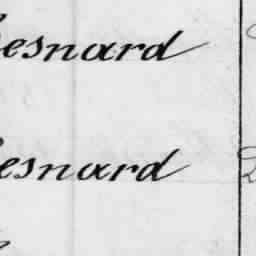 esnard
esnard